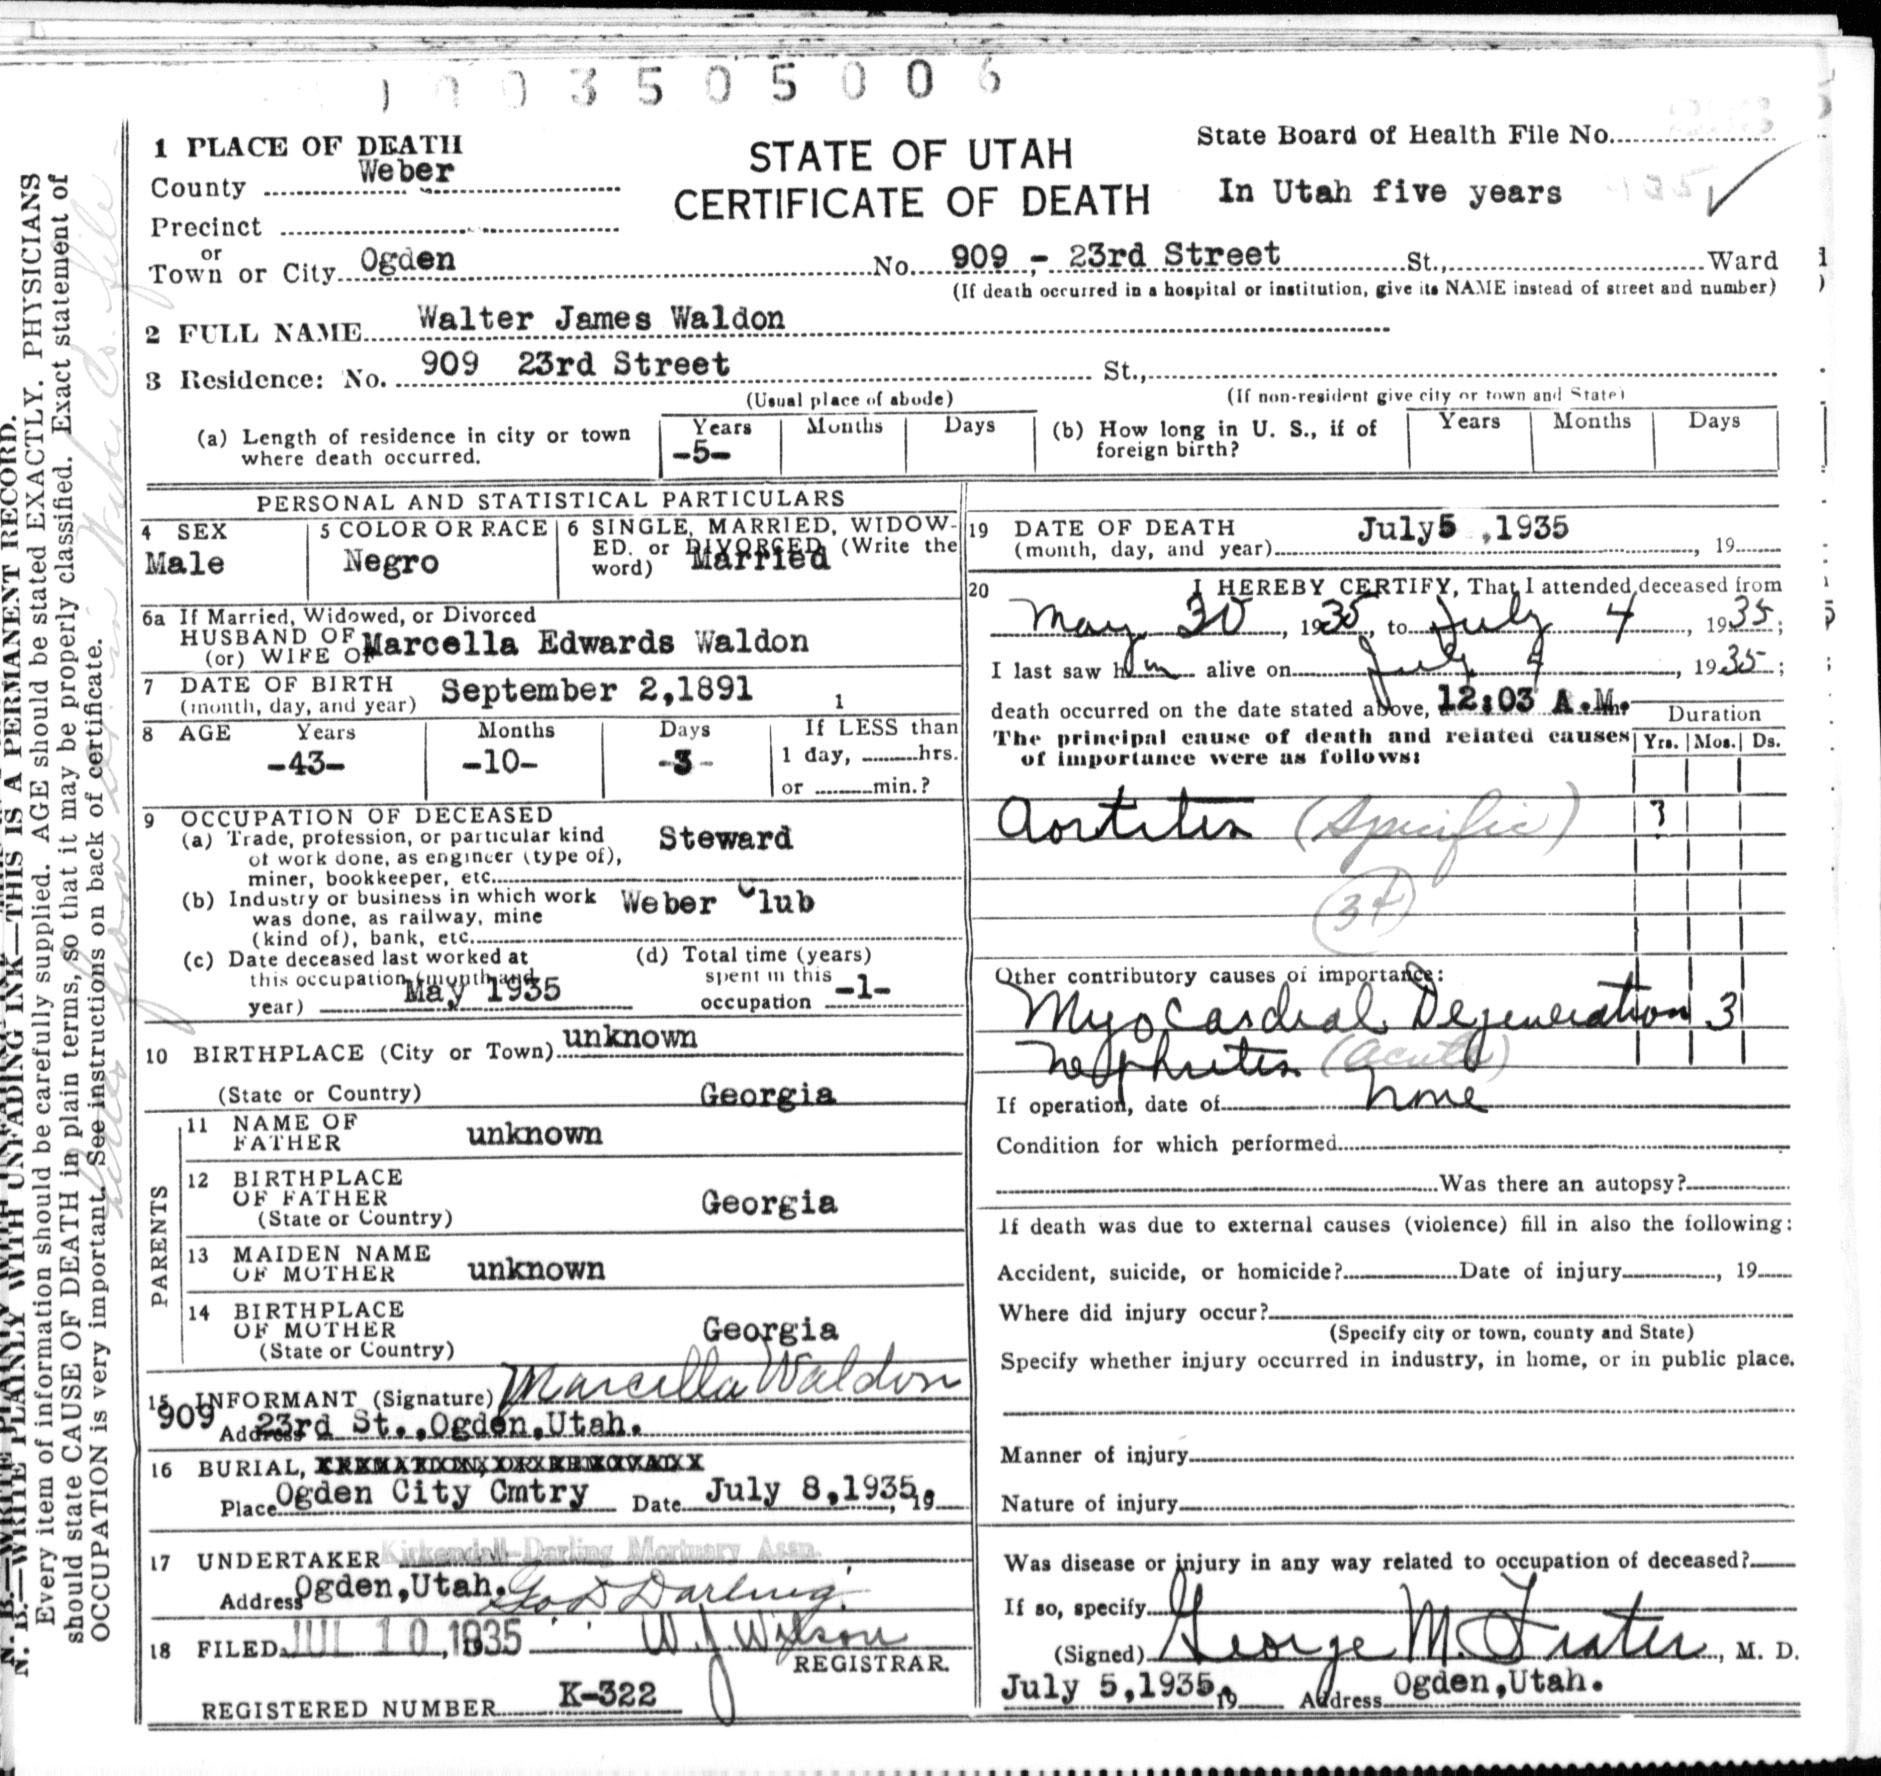 1003505006
1 PLACE OF DEATH
County Weber
Precinct
or
Town or City Ogden No. 909 - 23rd Street St., Ward
(If death occurred in a hospital or institution, give its NAME instead of street and number)
STATE OF UTAH
CERTIFICATE OF DEATH
State Board of Health File No.
In Utah five years
2 FULL NAME Walter James Waldon
3 Residence: No. 909 23rd Street St.,
(Usual place of abode) (If non-resident give city or town and State)
(a) Length of residence in city or town where death occurred. Years -5- Months Days
(b) How long in U. S., if of foreign birth? Years Months Days
PERSONAL AND STATISTICAL PARTICULARS
4 SEX Male
5 COLOR OR RACE Negro
6 SINGLE, MARRIED, WIDOWED, or DIVORCED (Write the word) Married
6a If Married, Widowed, or Divorced
HUSBAND OF
(or) WIFE OF Marcella Edwards Waldon
7 DATE OF BIRTH
(month, day, and year) September 2,1891 1
8 AGE Years Months Days If LESS than
-43- -10- -3- 1 day, hrs.
or min.?
9 OCCUPATION OF DECEASED
(a) Trade, profession, or particular kind Steward
of work done, as engineer (type of),
miner, bookkeeper, etc.
(b) Industry or business in which work Weber Club
was done, as railway, mine
(kind of), bank, etc.
(c) Date deceased last worked at
this occupation (month and
year) May 1935
(d) Total time (years)
spent in this
occupation -1-
10 BIRTHPLACE (City or Town) unknown
(State or Country) Georgia
PARENTS
11 NAME OF
FATHER unknown
12 BIRTHPLACE
OF FATHER Georgia
(State or Country)
13 MAIDEN NAME
OF MOTHER unknown
14 BIRTHPLACE
OF MOTHER Georgia
(State or Country)
15 INFORMANT (Signature) Marcella Waldon
Address 909 23rd St.,Ogden,Utah.
16 BURIAL,
Place Ogden City Cmtry Date July 8,1935, 19
17 UNDERTAKER Kirkendall-Darling Mortuary Assn.
Address Ogden,Utah. Geo D Darling
18 FILED JUL 10, 1935 W J Wilson
REGISTRAR.
REGISTERED NUMBER K-322
19 DATE OF DEATH
(month, day, and year) July5 ,1935 , 19
20 I HEREBY CERTIFY, That I attended deceased from
May 30, 1935, to July 4, 1935;
I last saw him alive on July 4, 1935;
death occurred on the date stated above, 12:03 A.M.
The principal cause of death and related causes
of importance were as follows:
Duration
Yrs. Mos. Ds.
Aortitis (Specific) ?
34
Other contributory causes of importance:
Myocardial Degeneration 3
Nephritis (acute)
If operation, date of none
Condition for which performed
Was there an autopsy?
If death was due to external causes (violence) fill in also the following:
Accident, suicide, or homicide? Date of injury , 19
Where did injury occur?
(Specify city or town, county and State)
Specify whether injury occurred in industry, in home, or in public place.
Manner of injury
Nature of injury
Was disease or injury in any way related to occupation of deceased?
If so, specify
(Signed) George M. Frater, M. D.
July 5,1935, 19 Address Ogden,Utah.
N. B.—WRITE PLAINLY WITH UNFADING INK—THIS IS A PERMANENT RECORD.
Every item of information should be carefully supplied. AGE should be stated EXACTLY. PHYSICIANS
should state CAUSE OF DEATH in plain terms, so that it may be properly classified. Exact statement of
OCCUPATION is very important. See instructions on back of certificate.